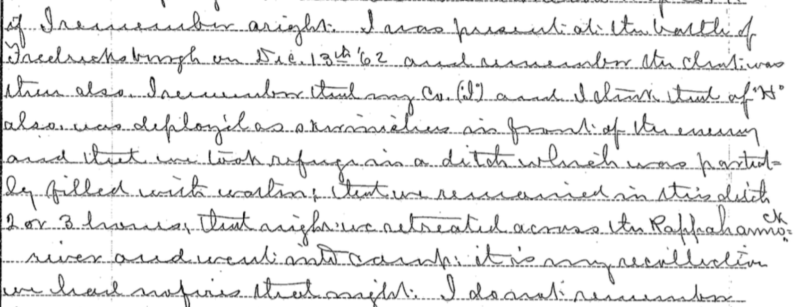 if I remember aright. I was present at the battle of
Fredricksburgh on Dec. 13th '62 and remember the clmt. was
there also. I remember that my Co. (I) and I think that of "H"
also, was deploy'd as skirmishers in front of the enemy
and that we took refuge in a ditch which was partial-
ly filled with water; that we remained in this ditch
2 or 3 hours, that night we retreated across the Rappahannock
river and went into camp; it is my recollection
we had no fires that night. I do not remember